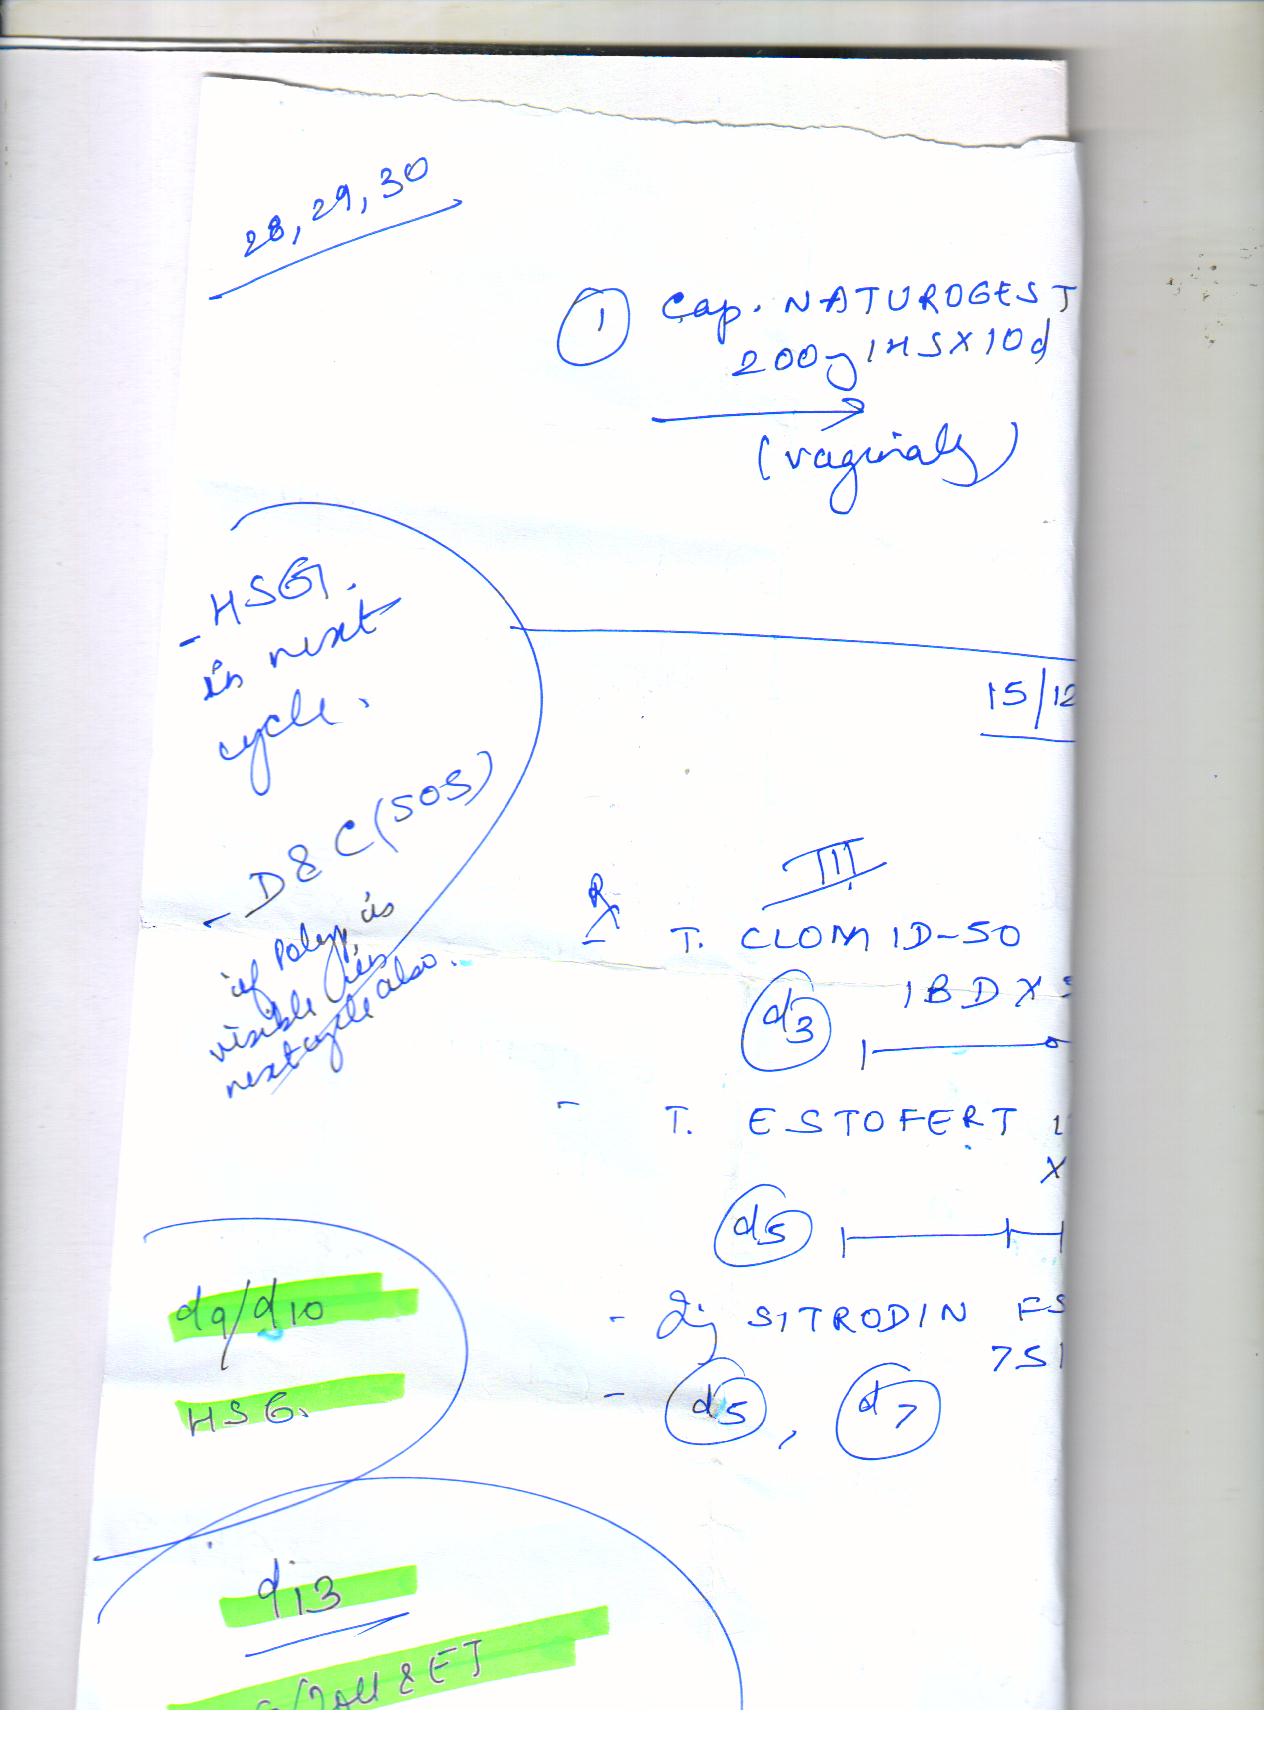 28, 29, 30
① Cap. NATUROGEST
200g 1HSX10d
(vaginally)
- HSG.
in next
cycle.
- D&C (SOS)
if Polyp is
visible in
next cycle also.
15/12
III
Rx T. CLOMID-50
1BDX
d3
- T. ESTOFERT
X
d5
- Inj SITRODIN FS
75I
- d5, d7
d9/d10
HSG.
d13
& ET